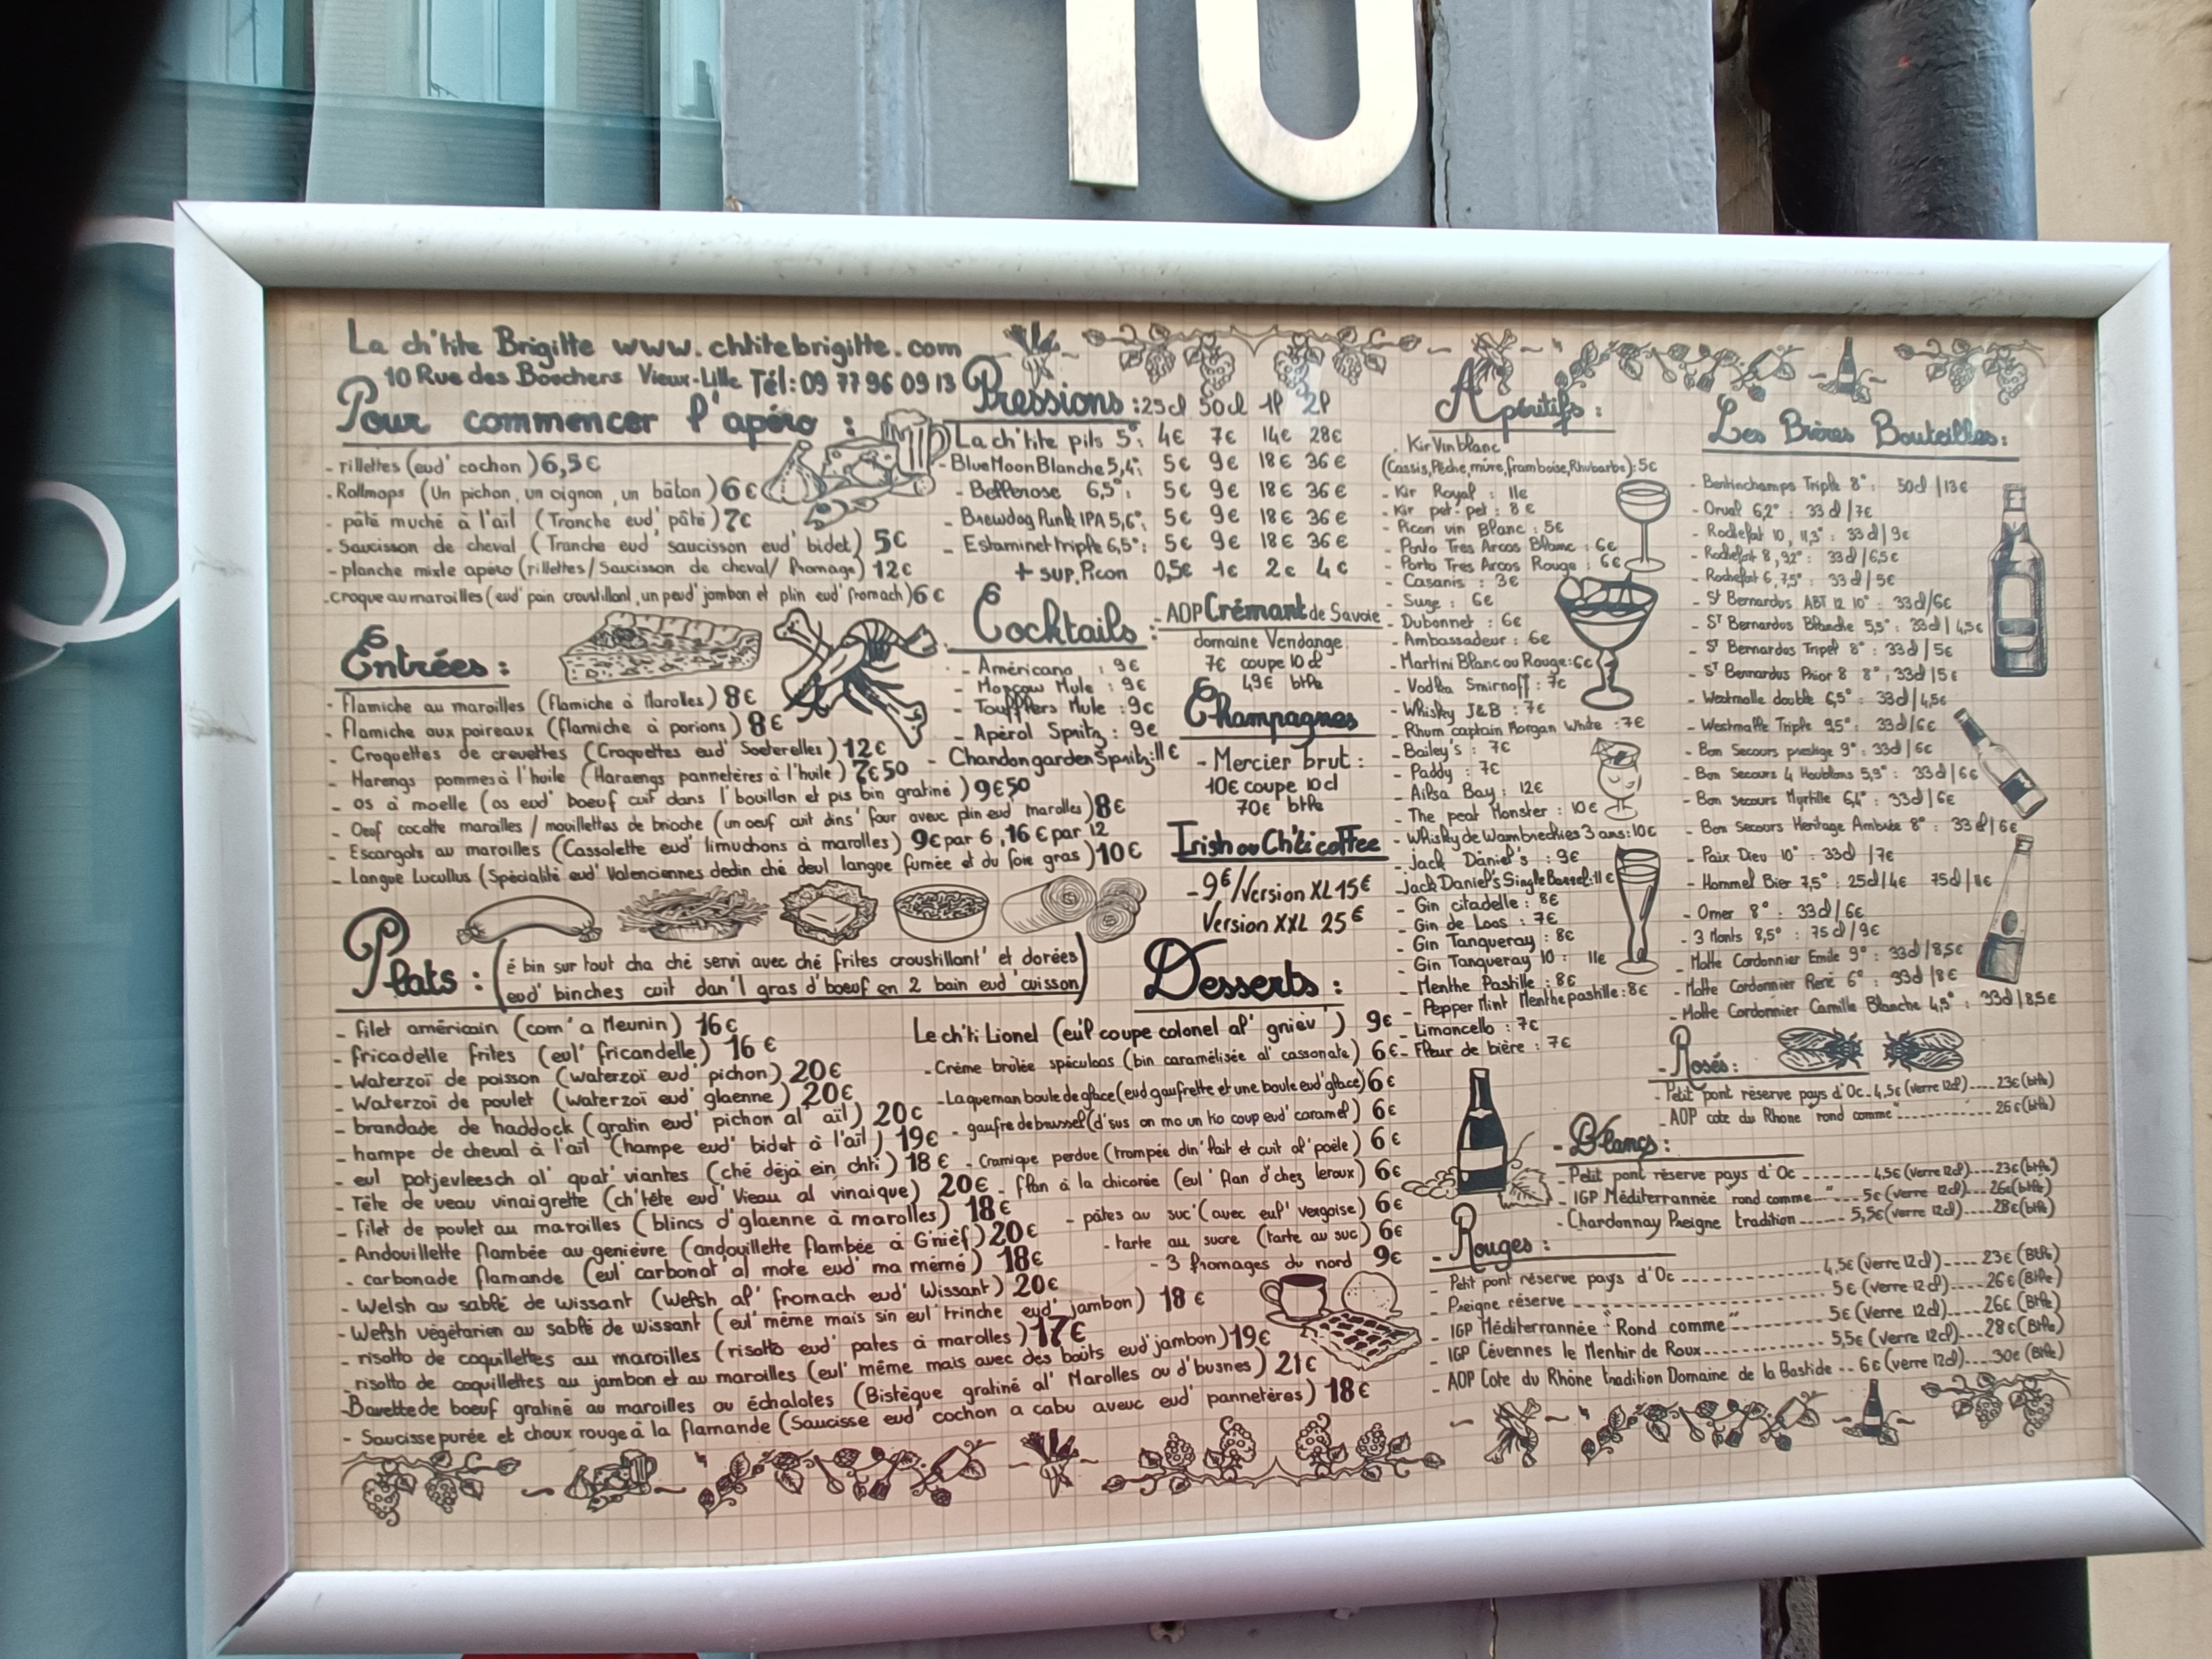 10
La ch'tite Brigitte www.chtitebrigitte.com
10 Rue des Bouchers Vieux-Lille Tél: 09 77 96 09 13
Pour commencer l'apéro :
- rillettes (eud' cochon) 6,5€
- Rollmops (Un pichon, un oignon, un bâton) 6€
- pâté muché à l'ail (Tranche eud' pâté) 7€
- Saucisson de cheval (Tranche eud' saucisson eud' bidet) 5€
- planche mixte apéro (rillettes/Saucisson de cheval/ fromage) 12€
- croque au maroilles (eud' pain croustillant, un peud' jambon et plin eud' fromach) 6€
Entrées :
- Flamiche au maroilles (flamiche à Marolles) 8€
- Flamiche aux poireaux (flamiche à porions) 8€
- Croquettes de crevettes (Croquettes eud' Soeterelles) 12€
- Harengs pommes à l'huile (Haraengs pannetères à l'huile) 7€50
- os à moelle (os eud' boeuf cuit dans l'bouillon et pis bin gratiné) 9€50
- Oeuf cocotte maroilles / mouillettes de brioche (un oeuf cuit dins' four aveuc plin eud' marolles) 8€
- Escargots au maroilles (Cassolette eud' limuchons à marolles) 9€ par 6, 16€ par 12
- Langue Lucullus (Spécialité eud' Valenciennes dedin ché deul langue fumée et du foie gras) 10€
Plats : (é bin sur tout cha ché servi avec ché frites croustillant' et dorées
eud' binches cuit dan'l gras d'boeuf en 2 bain eud' cuisson)
- filet américain (com' a Meunin) 16€
- fricadelle frites (eul' fricandelle) 16€
- Waterzoï de poisson (waterzoï eud' pichon) 20€
- Waterzoï de poulet (waterzoï eud' glaenne) 20€
- brandade de haddock (gratin eud' pichon al' ail) 20€
- hampe de cheval à l'ail (hampe eud' bidet à l'ail) 19€
- eul potjevleesch al' quat' viantes (ché déjà ein chti) 18€
- Tête de veau vinaigrette (ch'tête eud' Vieau al vinaique) 20€
- filet de poulet au maroilles (blincs d'glaenne à marolles) 18€
- Andouillette flambée au genièvre (andouillette flambée à G'nièf) 20€
- carbonade flamande (eul' carbonat' al mote eud' ma mémé) 18€
- Welsh au sablé de wissant (Welsh al' fromach eud' Wissant) 20€
- Welsh végétarien au sablé de wissant (eul' même mais sin eul' trinche eud' jambon) 18€
- risotto de coquillettes au maroilles (risotto eud' pates à marolles) 17€
- risotto de coquillettes au jambon et au maroilles (eul' même mais avec des bouts eud' jambon) 19€
- Bavette de boeuf gratiné au maroilles ou échalotes (Bistèque gratiné al' Marolles ou d'busnes) 21€
- Saucisse purée et choux rouge à la flamande (Saucisse eud' cochon a cabu aveuc eud' pannetères) 18€
Pressions : 25cl 50cl 1P 2P
La ch'tite pils 5°: 4€ 7€ 14€ 28€
- Blue Moon Blanche 5,4°: 5€ 9€ 18€ 36€
- Bellerose 6,5°: 5€ 9€ 18€ 36€
- Brewdog Punk IPA 5,6°: 5€ 9€ 18€ 36€
- Estaminet triple 6,5°: 5€ 9€ 18€ 36€
+ sup. Picon 0,5€ 1€ 2€ 4€
Cocktails :
- Américano : 9€
- Moscow Mule : 9€
- Toufflers Mule : 9€
- Apérol Spritz : 9€
- Chandon garden Spritz: 11€
- AOP Crémant de Savoie
domaine Vendange
7€ coupe 10cl
49€ btlle
Champagnes
- Mercier brut :
10€ coupe 10cl
70€ btlle
Irish ou Ch'ti coffee
- 9€/Version XL 15€
Version XXL 25€
Desserts :
Le ch'ti Lionel (eu'l coupe colonel al' gnièv') 9€
- Crème brûlée spéculoos (bin caramélisée al' cassonate) 6€
- La queman boule de glace (eud gaufrette et une boule eud' glace) 6€
- gaufre de brussel (d'sus on mo un tio coup eud' caramel) 6€
- Cramique perdue (trompée din' lait et cuit al' poêle) 6€
- flan à la chicorée (eul' flan d'chez leroux) 6€
- pâtes au suc' (avec eul' vergoise) 6€
- tarte au sucre (tarte au suc) 6€
- 3 fromages du nord 9€
Apéritifs :
- Kir Vin blanc
(Cassis, Pêche, mûre, framboise, Rhubarbe): 5€
- Kir Royal : 11€
- Kir pet. pet : 8€
- Picon vin Blanc : 5€
- Porto Tres Arcos Blanc : 6€
- Porto Tres Arcos Rouge : 6€
- Casanis : 3€
- Suze : 6€
- Dubonnet : 6€
- Ambassadeur : 6€
- Martini Blanc ou Rouge: 6€
- Vodka Smirnoff : 7€
- Whisky J&B : 7€
- Rhum captain Morgan White : 7€
- Bailey's : 7€
- Paddy : 7€
- Ailsa Bay : 12€
- The peat Monster : 10€
- Whisky de Wambrechies 3 ans: 10€
- Jack Daniel's : 9€
- Jack Daniel's Single Barrel: 11€
- Gin citadelle : 8€
- Gin de Loos : 7€
- Gin Tanqueray : 8€
- Gin Tanqueray 10 : 11€
- Menthe Pastille : 8€
- Pepper Mint Menthe pastille : 8€
- Limoncello : 7€
- Fleur de bière : 7€
Les Bières Bouteilles :
- Bertinchamps Triple 8° : 50cl | 13€
- Orval 6,2° : 33cl | 7€
- Rochefort 10, 11,3° : 33cl | 9€
- Rochefort 8, 9,2° : 33cl | 6,5€
- Rochefort 6, 7,5° : 33cl | 5€
- St Bernardus ABT 12 10° : 33cl | 6€
- ST Bernardus Blanche 5,5° : 33cl | 4,5€
- ST Bernardus Tripel 8° : 33cl | 5€
- ST Bernardus Prior 8 8° : 33cl | 5€
- Westmalle double 6,5° : 33cl | 4,5€
- Westmalle Triple 9,5° : 33cl | 6€
- Bon Secours prestige 9° : 33cl | 6€
- Bon Secours 4 Houblons 5,9° : 33cl | 6€
- Bon Secours Myrtille 6,4° : 33cl | 6€
- Bon Secours Heritage Ambrée 8° : 33cl | 6€
- Paix Dieu 10° : 33cl | 7€
- Hommel Bier 7,5° : 25cl | 4€ 75cl | 8€
- Omer 8° : 33cl | 6€
- 3 Monts 8,5° : 75cl | 9€
- Motte Cordonnier Emile 9° : 33cl | 8,5€
- Motte Cordonnier René 6° : 33cl | 8€
- Motte Cordonnier Camille Blanche 4,5° : 33cl | 8,5€
- Rosés :
- Petit pont réserve pays d'Oc - 4,5€ (verre 12cl) ---- 23€ (btlle)
- AOP cote du Rhone "rond comme" ---------- 26€ (btlle)
- Blancs :
- Petit pont réserve pays d'Oc -------- 4,5€ (verre 12cl) ---- 23€ (btlle)
- IGP Méditerrannée "rond comme" --- 5€ (verre 12cl) --- 26€ (btlle)
- Chardonnay Preigne tradition ------ 5,5€ (verre 12cl) --- 28€ (btlle)
- Rouges :
- Petit pont réserve pays d'Oc ------------ 4,5€ (verre 12cl) ---- 23€ (Btlle)
- Preigne réserve -------------------- 5€ (verre 12cl) ---- 26€ (Btlle)
- IGP Méditerrannée "Rond comme" -------- 5€ (verre 12cl) ---- 26€ (Btlle)
- IGP Cévennes le Menhir de Roux ---------- 5,5€ (verre 12cl) --- 28€ (Btlle)
- AOP Cote du Rhône tradition Domaine de la Bastide -- 6€ (verre 12cl) ---- 30€ (Btlle)